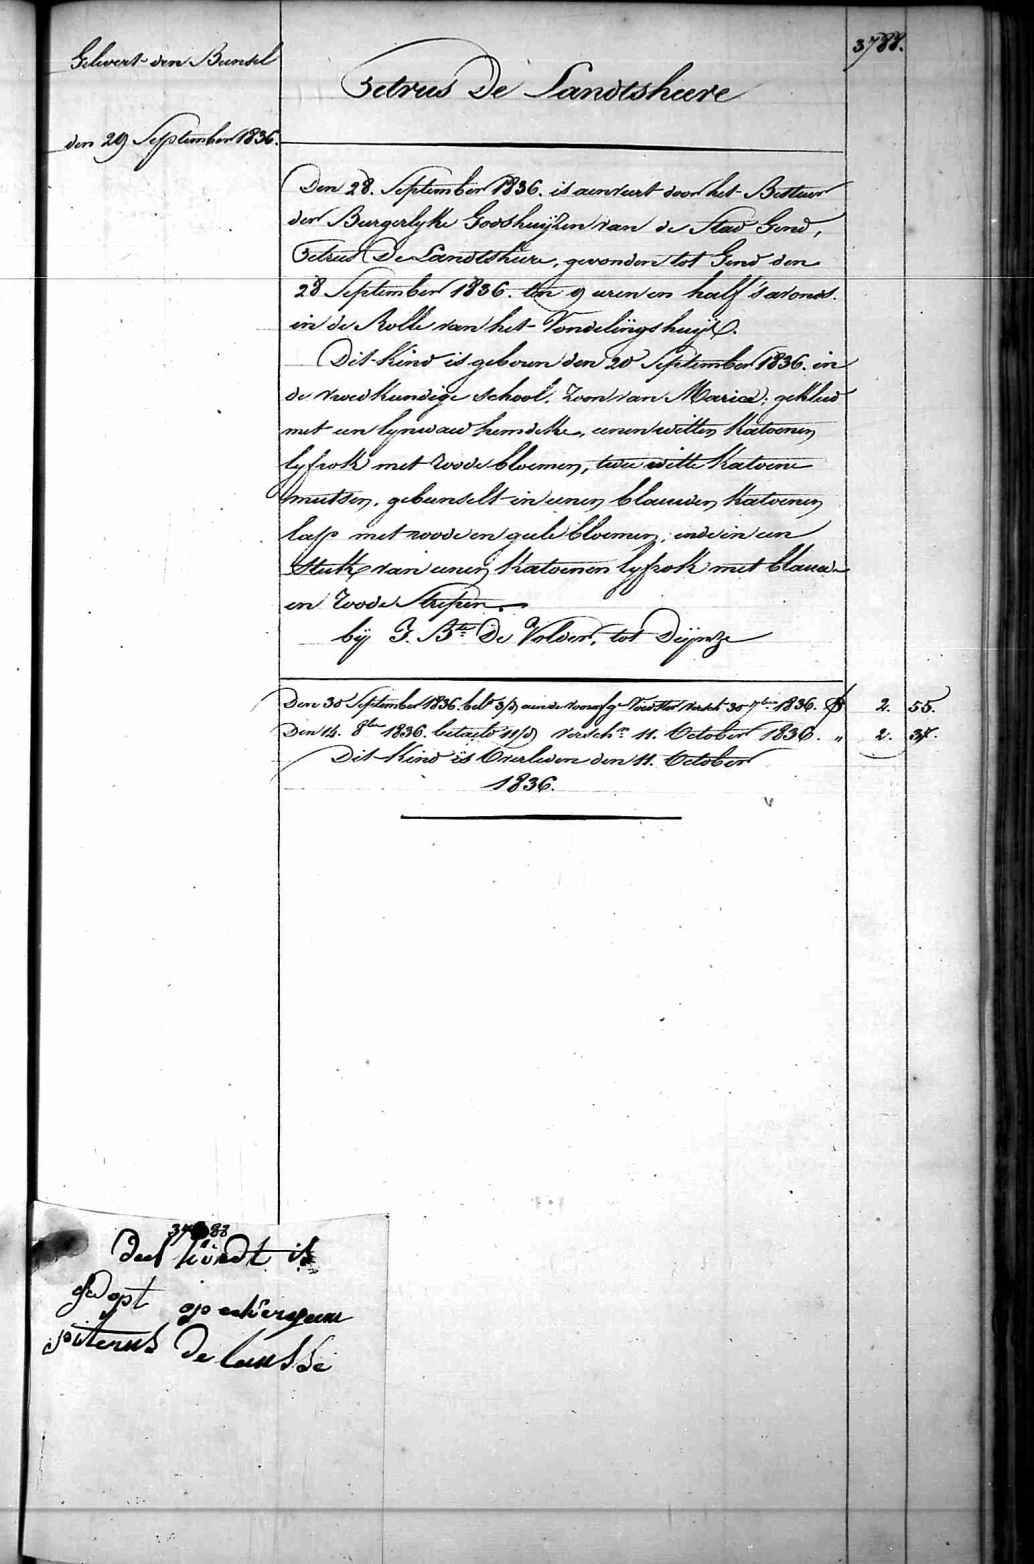 3788.
Gelevert den Bunsel
den 29 September 1836.
Petrus De Landtsheere
Den 28. September 1836. is aenveert door het Bestuer
der Burgerlyke Godshuijzen van de Stad Gend,
Petrus De Landtsheere, gevonden tot Gend den
28 September 1836. ten 9 uren en half 's avonds.
in de Rolle van het Vondelingshuijs.
Dit Kind is geboren den 20 September 1836. in
de vroedkundige school. Zoon van Maria: gekleed
met een lynwaed hemdeke, eenen witten Katoenen
lyfrok met roode bloemen, twee witte Katoene
mutsen, gebunselt in eenen blauwen Katoenen
lasp met roode en geele bloemen, ende in een
Stuk van eenen Katoenen lyfrok met blauw-
en roode Strepen.
bij J. Bte De Volder, tot Deijnze
Den 30 September 1836. belt 3/d aen de voorsg Voedster versch 30 7ber 1836. 2. 55.
Den 14. 8ber 1836. betaelt 11/d versch.n 11. October 1836. " 2. 34.
Dit Kind is Overleden den 11. October
1836.
3788
deet kindt is
gedopt op
piterus de